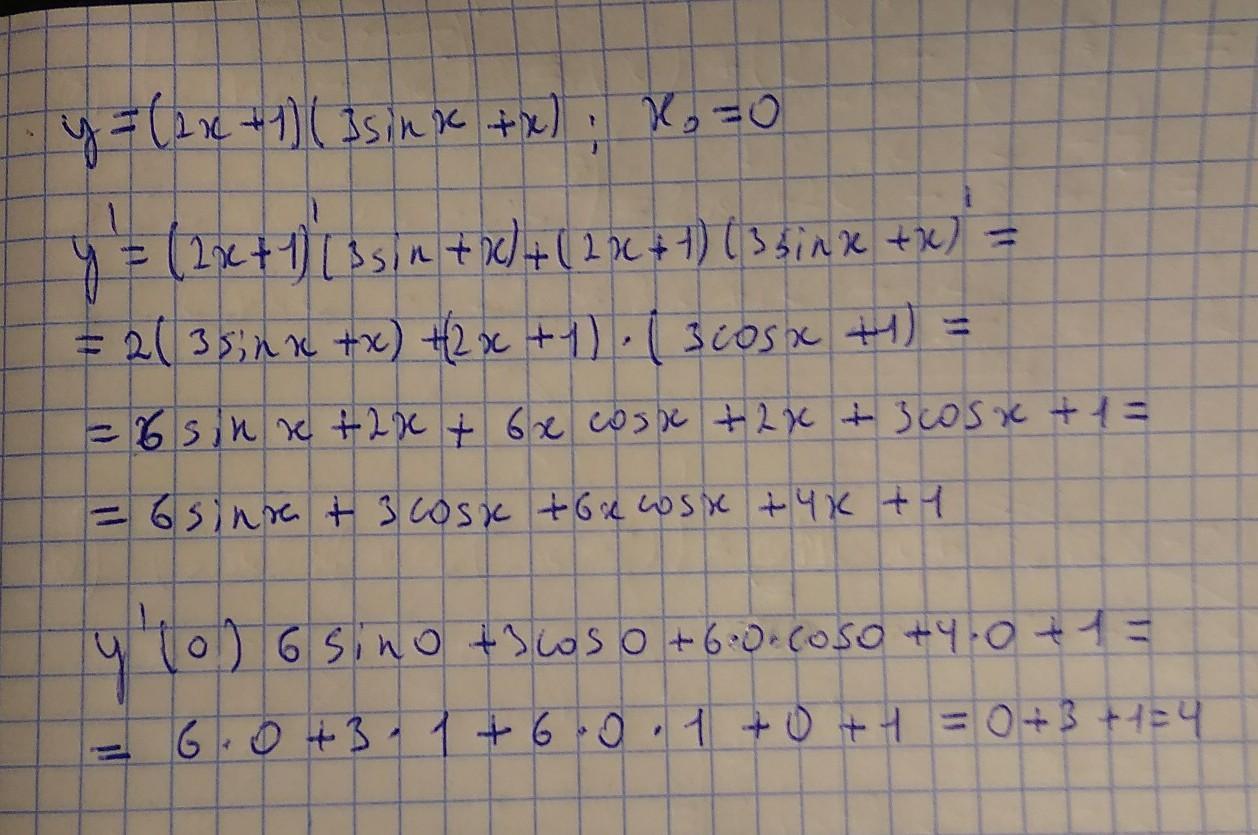 y = (2x + 1)(3sinx + x) ; x₀ = 0
y' = (2x+1)'(3sin + x) + (2x + 1)(3sinx + x)' =
= 2(3sinx + x) + (2x + 1) · (3cosx + 1) =
= 6sinx + 2x + 6x cosx + 2x + 3cosx + 1 =
= 6sinx + 3cosx + 6x cosx + 4x + 1
y'(0) 6sin0 + 3cos0 + 6·0·cos0 + 4·0 + 1 =
= 6·0 + 3·1 + 6·0·1 + 0 + 1 = 0 + 3 + 1 = 4